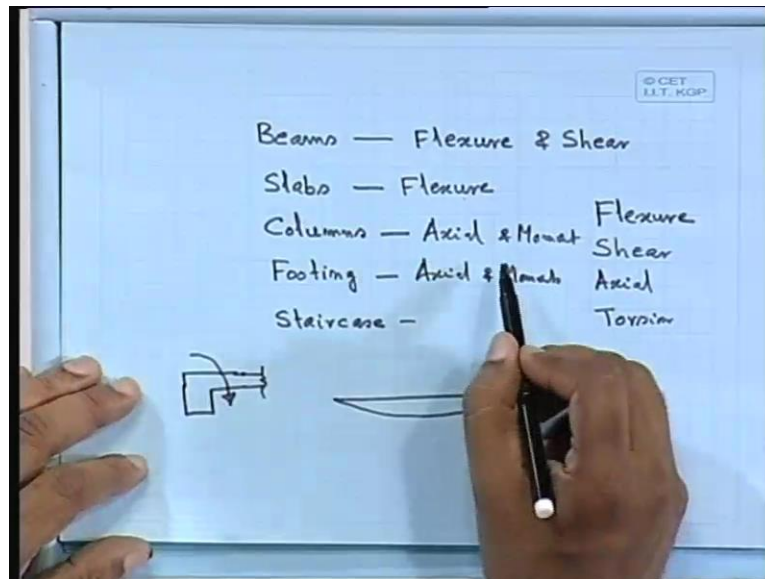 © CET
I.I.T. KGP
Beams — Flexure & Shear
Slabs — Flexure
Columns — Axial & Momat
Footing — Axial & Momats
Staircase —
Flexure
Shear
Axial
Torsion